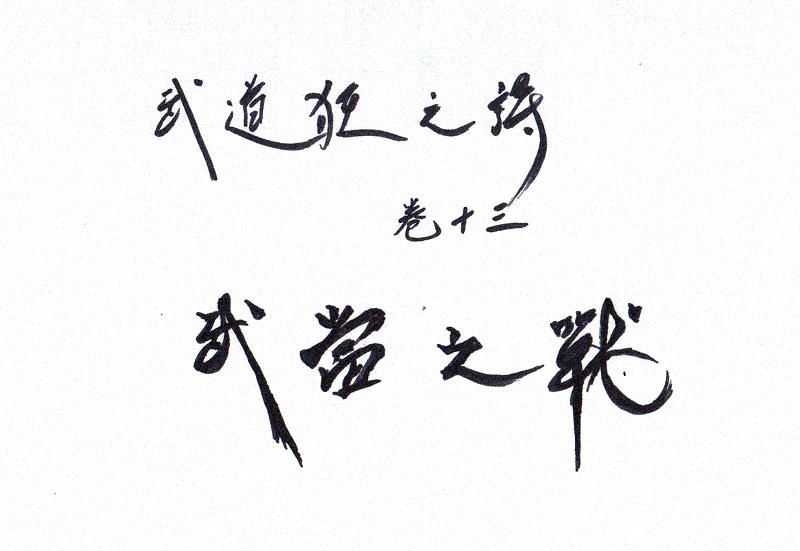 武道狂之詩
卷十三
武當之戰